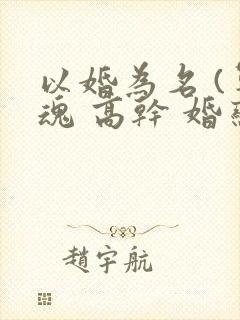 以婚為名(
魂 高幹 婚
趙宇航